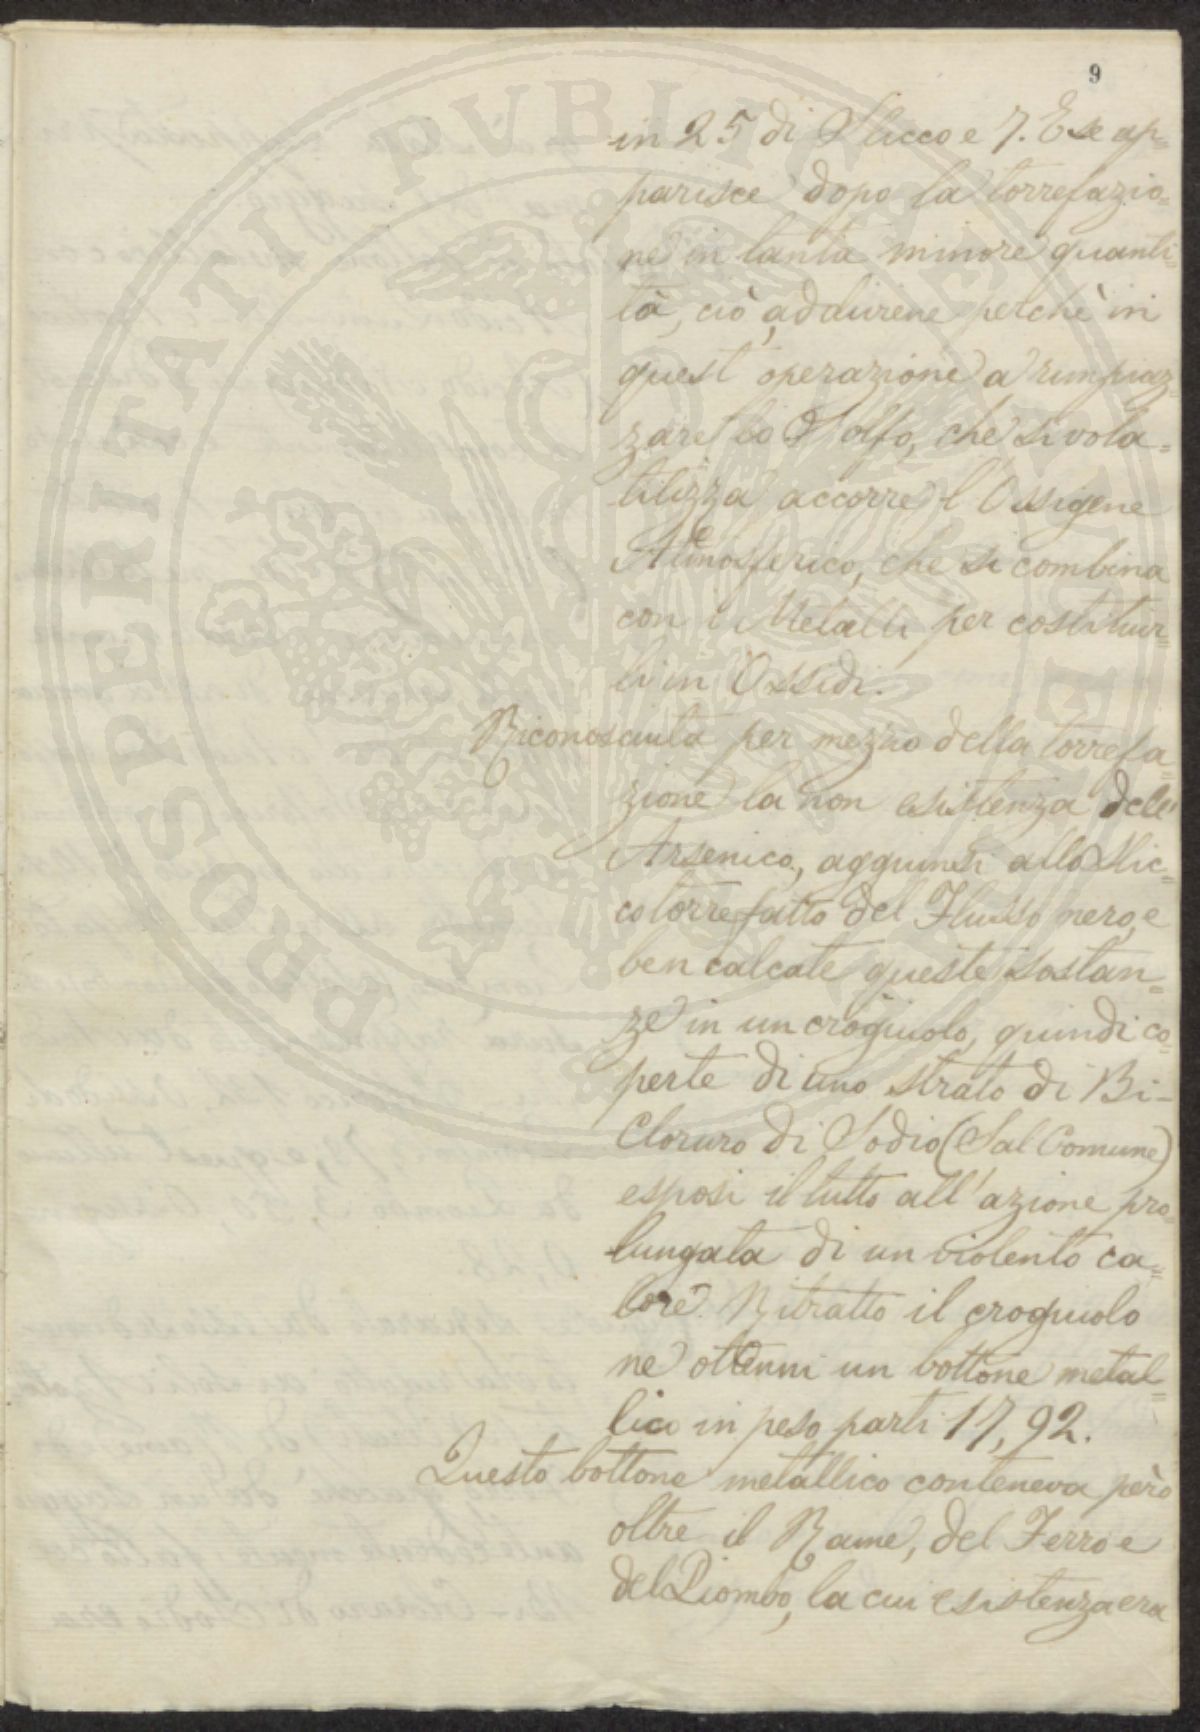 9
in 25 di Slicco e 7. E se ap=
parisce dopo la torrefazio=
ne in tanta minore quanti=
tà, ciò addiviene perchè in
quest' operazione a rimpiaz=
zare lo Solfo, che si vola=
tilizza accorre l'Ossigene
Atmosferico, che si combina
con i Metalli per costituir=
li in Ossidi.
Riconosciuta per mezzo della torrefa=
zione la non esistenza dell'
Arsenico, aggiunsi allo Slic=
co torrefatto del Flusso nero, e
ben calcate queste sostan=
ze in un crogiuolo, quindi co=
perte di uno strato di Bi-
Cloruro di Sodio (Sal Comune)
esposi il tutto all'azione pro=
lungata di un violento ca=
lore. Ritratto il crogiuolo
ne ottenni un bottone metal=
lico in peso parti 17,92.
Questo bottone metallico conteneva però
oltre il Rame, del Ferro e
del Piombo, la cui esistenza era
PROSPERITATI PUBLICAE